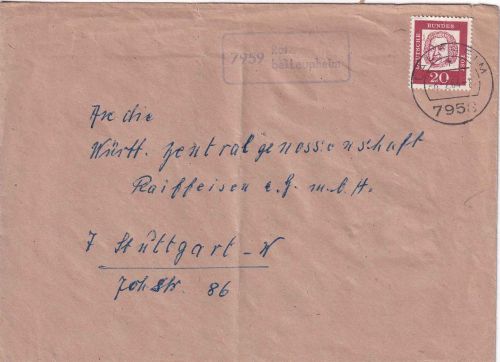 7959 Rot
Laupheim
DEUTSCHE BUNDESPOST
20
LM
795
An die
Württ. Zentralgenossenschaft
Raiffeisen e.G.m.b.H.
7 Stuttgart-W
Johstr. 86